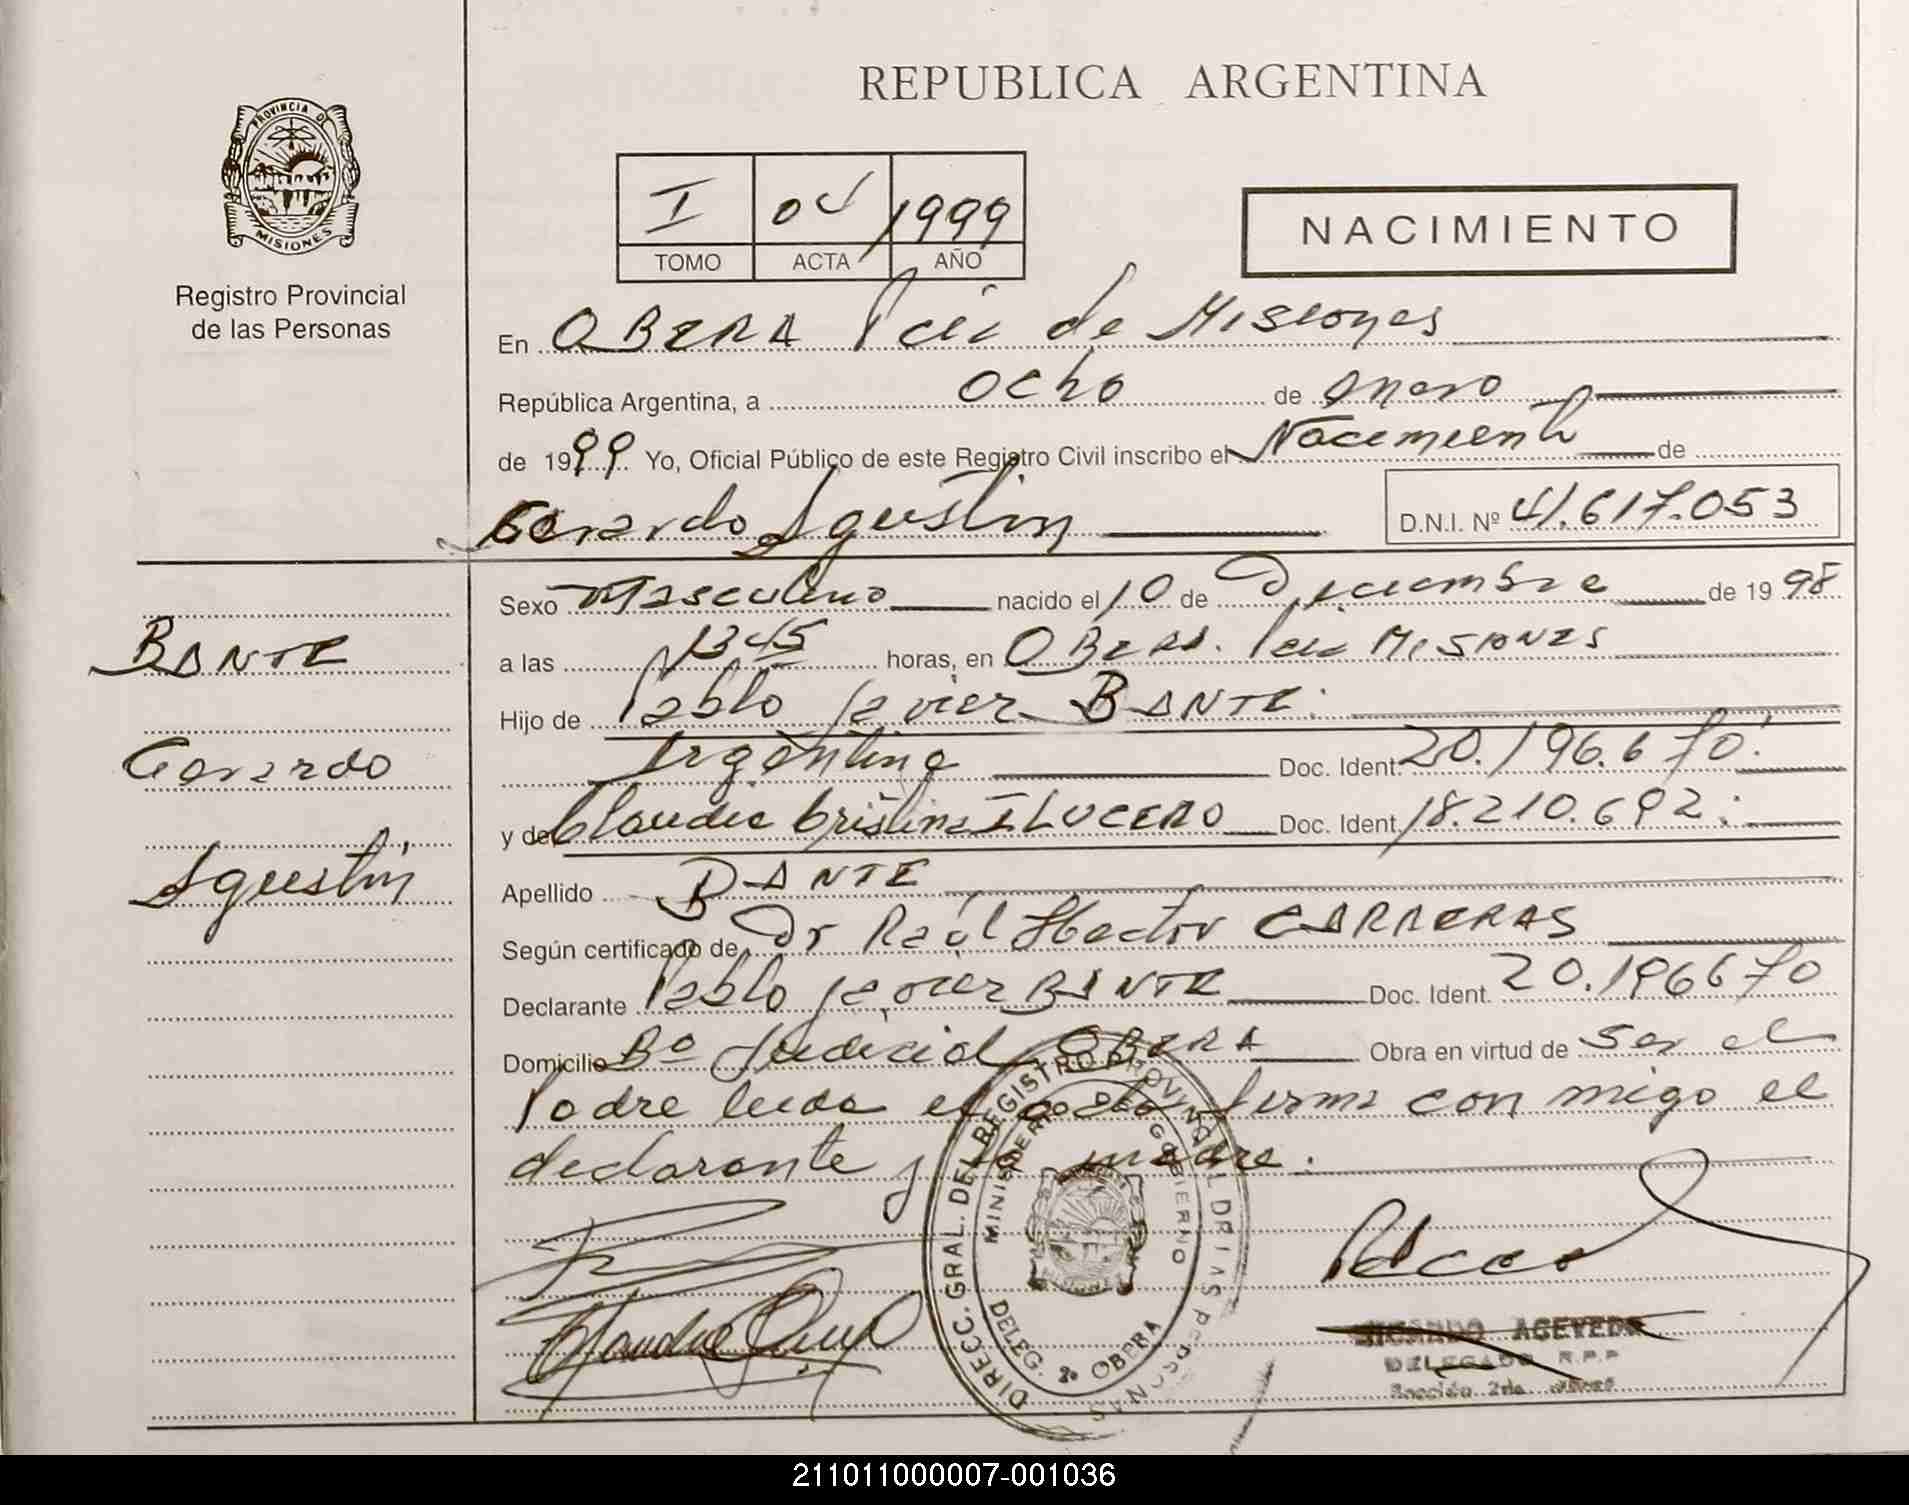 REPUBLICA ARGENTINA
PROVINCIA DE
MISIONES
Registro Provincial
de las Personas
I 04 1999
TOMO ACTA AÑO
NACIMIENTO
En OBERA Pcia de Misiones
República Argentina, a ocho de enero
de 1999 Yo, Oficial Público de este Registro Civil inscribo el Nacimiento de
Gerardo Agustin D.N.I. Nº 41.617.053
Sexo Masculino nacido el 10 de Diciembre de 1998
a las 1345 horas, en OBERA. Pcia MISIONES
BANTE
Hijo de Pablo Javier BANTE.
Gerardo
Argentina Doc. Ident. 20.196.670.
y de Claudia Cristina LUCERO Doc. Ident. 18.210.692:
Agustin
Apellido BANTE
Según certificado de Dr Raúl Hector CARRERAS
Declarante Pablo Javier BANTE Doc. Ident. 20.196670
Domicilio Bº Judicial OBERA Obra en virtud de ser el
Padre leida el acta firma con migo el
declarante y la madre.
DIRECC. GRAL. DEL REGISTRO PROVINCIAL DE LAS PERSONAS
MINISTERIO DE GOBIERNO
DELEG. 2º OBERA
RICARDO ACEVEDO
DELEGADO R.P.P
Sección 2da
211011000007-001036